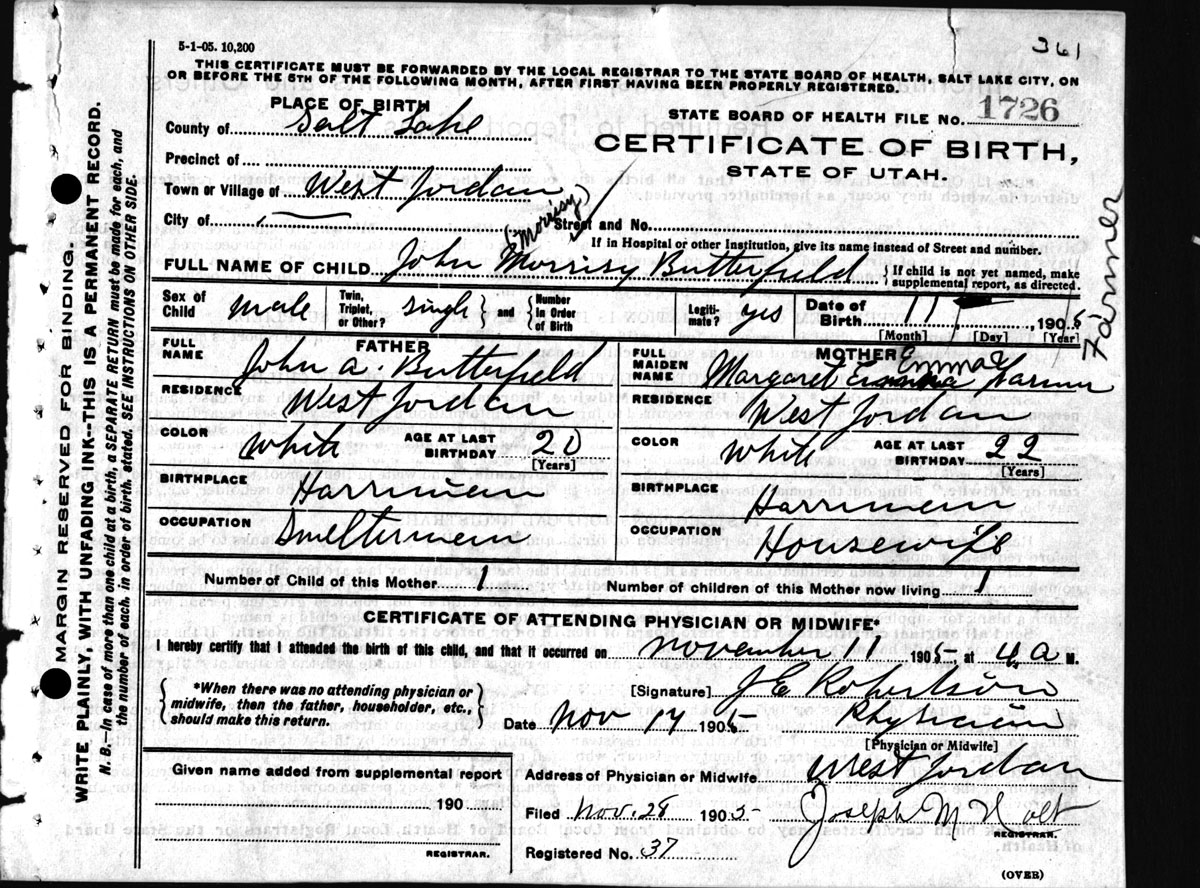 361
5-1-05. 10,200
THIS CERTIFICATE MUST BE FORWARDED BY THE LOCAL REGISTRAR TO THE STATE BOARD OF HEALTH, SALT LAKE CITY, ON
OR BEFORE THE 5TH OF THE FOLLOWING MONTH, AFTER FIRST HAVING BEEN PROPERLY REGISTERED.
PLACE OF BIRTH
STATE BOARD OF HEALTH FILE No. 1726
County of Salt Lake
CERTIFICATE OF BIRTH,
STATE OF UTAH.
Precinct of
Town or Village of West Jordan
City of
Street and No.
(Morrisy)
If in Hospital or other Institution, give its name instead of Street and number.
FULL NAME OF CHILD John Morrisy Butterfield { If child is not yet named, make
supplemental report, as directed.
Sex of Child male
Twin, Triplet, or Other? single } and { Number in Order of Birth
Legiti-mate? yes
Date of Birth 11 , 1905
[Month] [Day] [Year]
FATHER
FULL NAME John A. Butterfield
RESIDENCE West Jordan
COLOR White AGE AT LAST BIRTHDAY 20
[Years]
BIRTHPLACE Harriman
OCCUPATION Smelterman
MOTHER
Emma
FULL MAIDEN NAME Margaret Farmer
RESIDENCE West Jordan
COLOR White AGE AT LAST BIRTHDAY 22
[Years]
BIRTHPLACE Harriman
OCCUPATION Housewife
Number of Child of this Mother 1
Number of children of this Mother now living 1
CERTIFICATE OF ATTENDING PHYSICIAN OR MIDWIFE*
I hereby certify that I attended the birth of this child, and that it occurred on November 11 1905, at 4 a M.
{ *When there was no attending physician or
midwife, then the father, householder, etc.,
should make this return. }
[Signature] J E Robertson
Date Nov 14 1905 Physician
[Physician or Midwife]
Given name added from supplemental report
190
REGISTRAR.
Address of Physician or Midwife West Jordan
Filed Nov. 28 1905 Joseph M Holt
REGISTRAR.
Registered No. 37
(OVER)
MARGIN RESERVED FOR BINDING
WRITE PLAINLY, WITH UNFADING INK--THIS IS A PERMANENT RECORD.
N. B.—In case of more than one child at a birth, a SEPARATE RETURN must be made for each, and
the number of each, in order of birth, stated. SEE INSTRUCTIONS ON OTHER SIDE.
Farmer